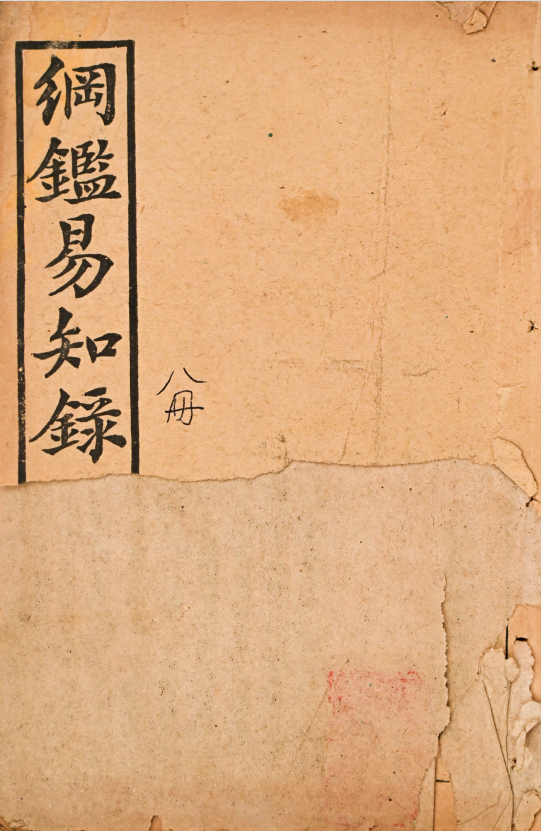 綱鑑易知錄
八冊